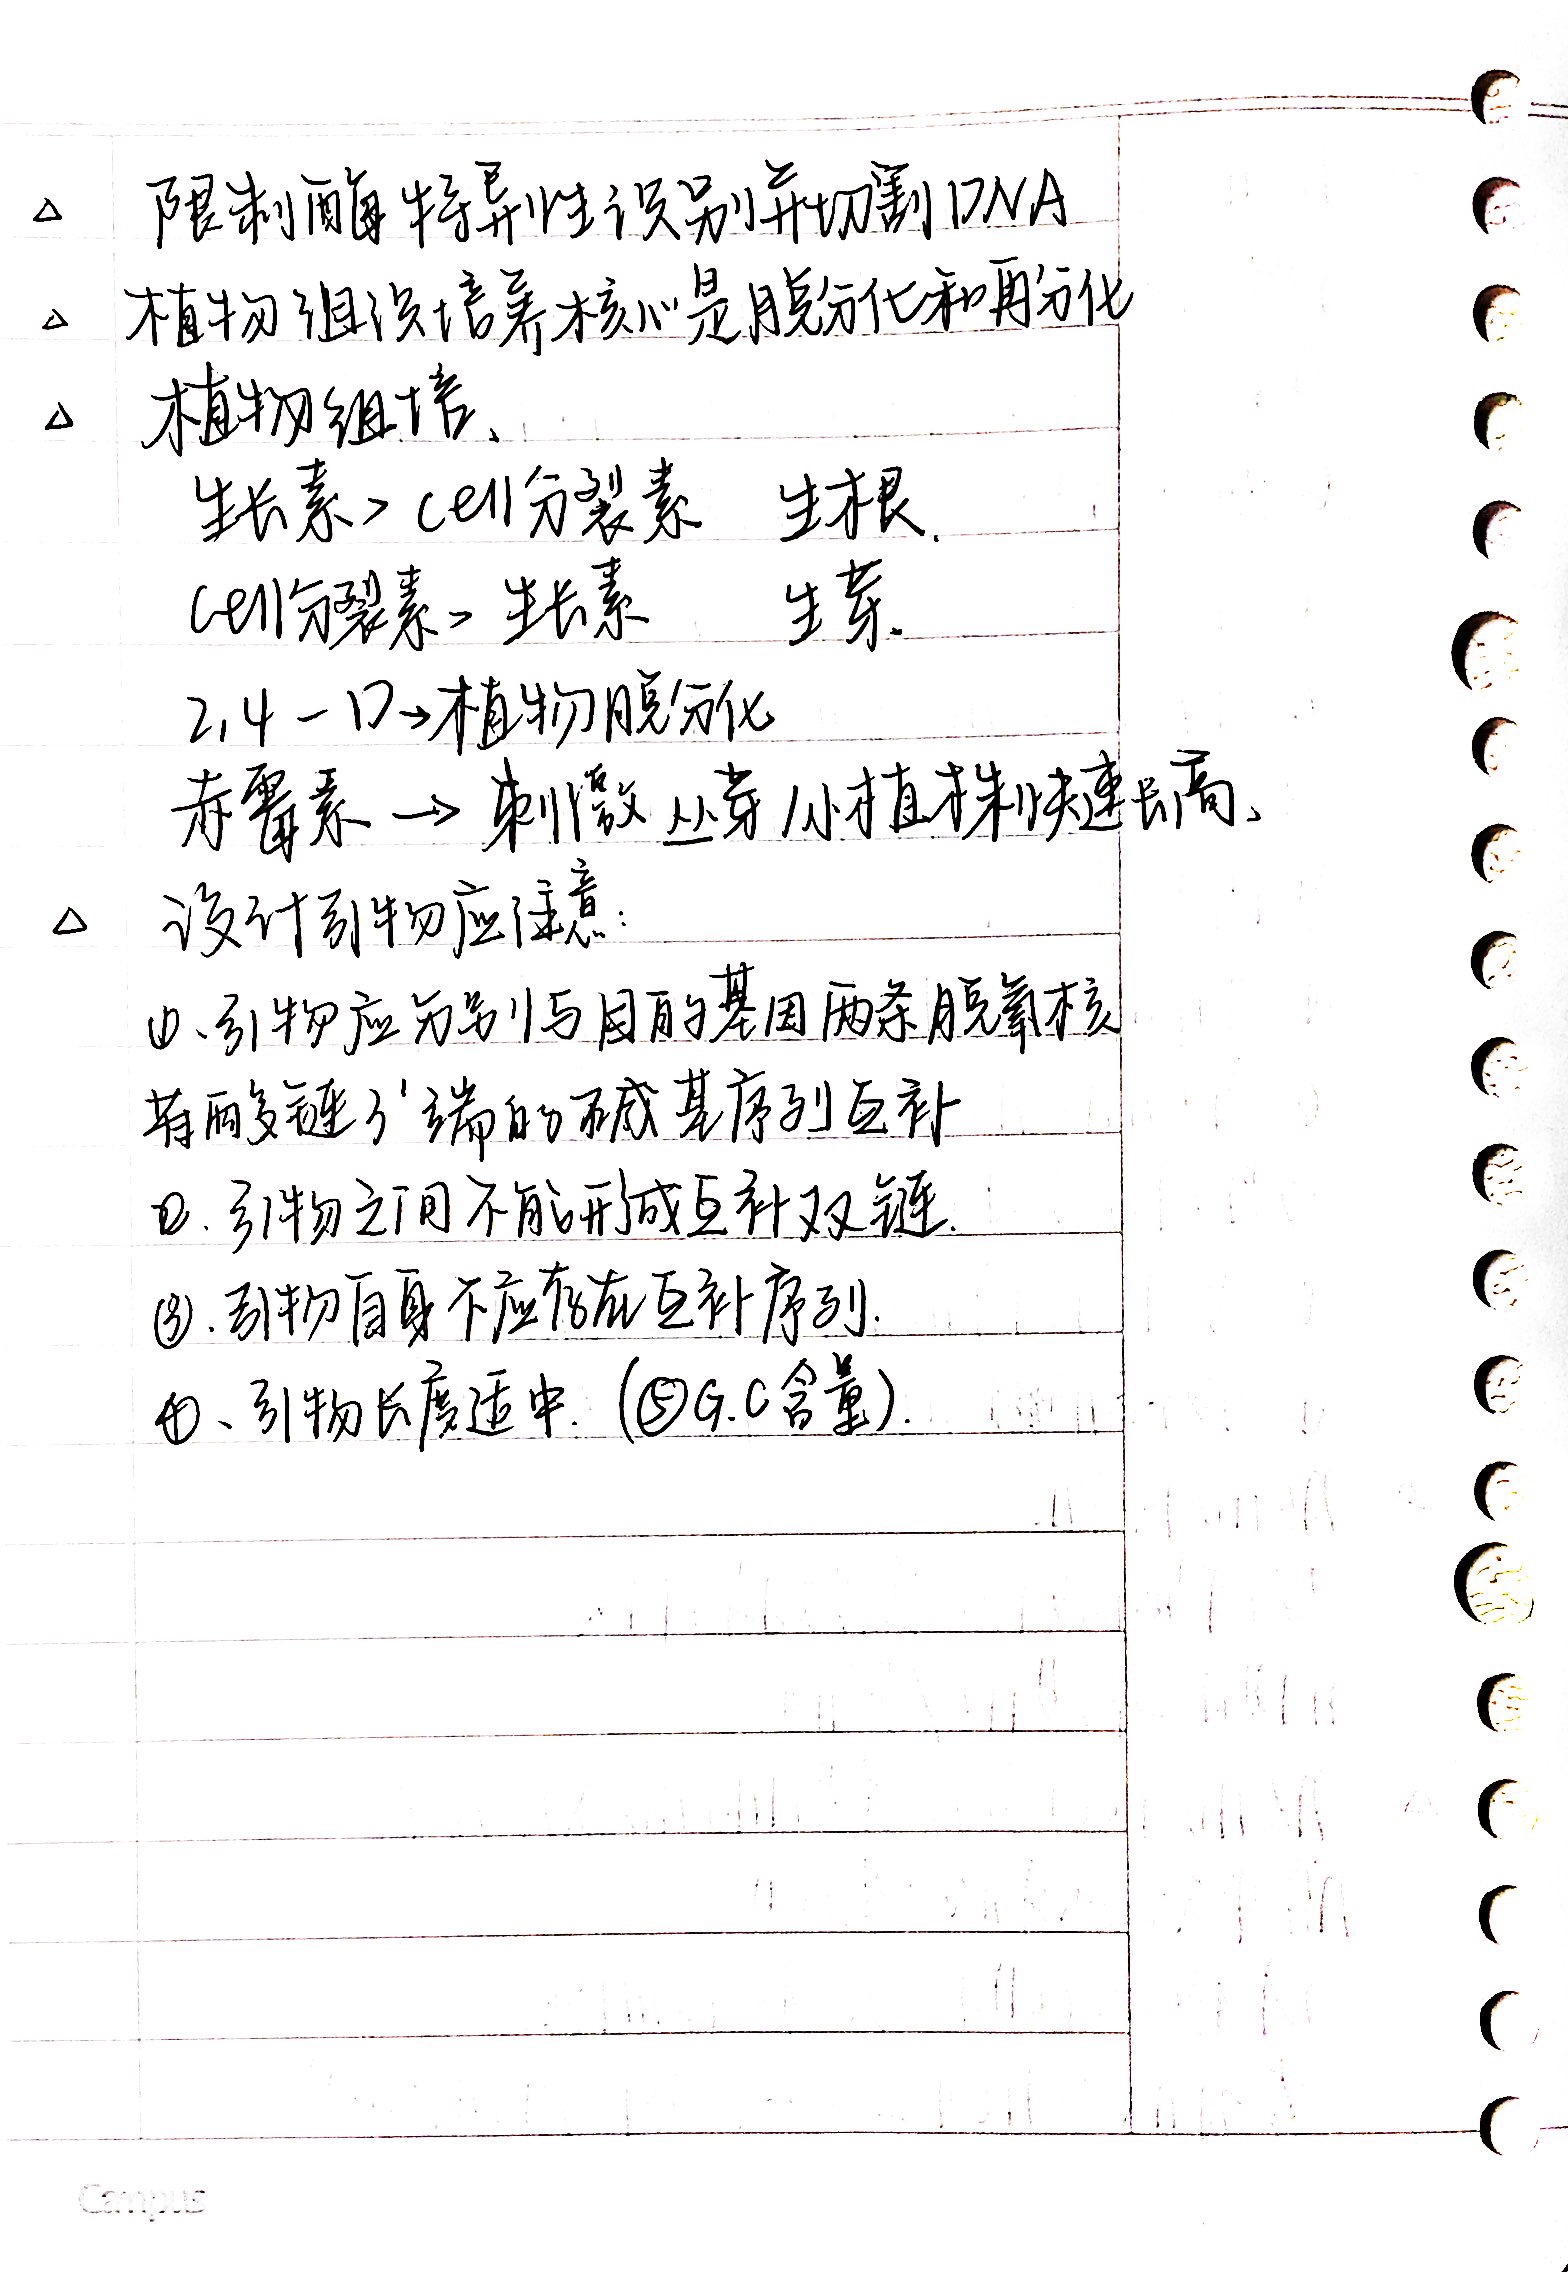 △ 限制酶特异性识别并切割DNA
△ 植物组织培养核心是脱分化和再分化
△ 植物组培、
生长素> cell分裂素 生根.
cell分裂素> 生长素 生芽.
2,4-D→植物脱分化
赤霉素 → 刺激丛芽/小植株快速长高、
△ 设计引物应注意:
①、引物应分别与目的基因两条脱氧核
苷酸链3'端的碱基序列互补
②. 引物之间不能形成互补双链.
③. 引物自身不应存在互补序列.
④、引物长度适中. (⑤G.C含量).
Campus